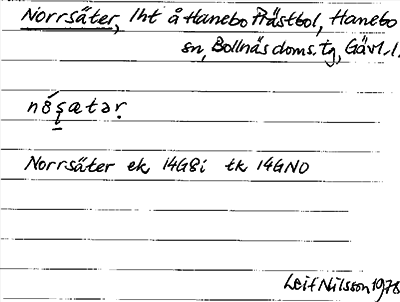 Norrsäter, lht å Hanebo Prästbol, Hanebo
sn, Bollnäs doms. tg, Gävl. l.
Norrsäter ek 14G8i tk 14GNO
Leif Nilsson 1978